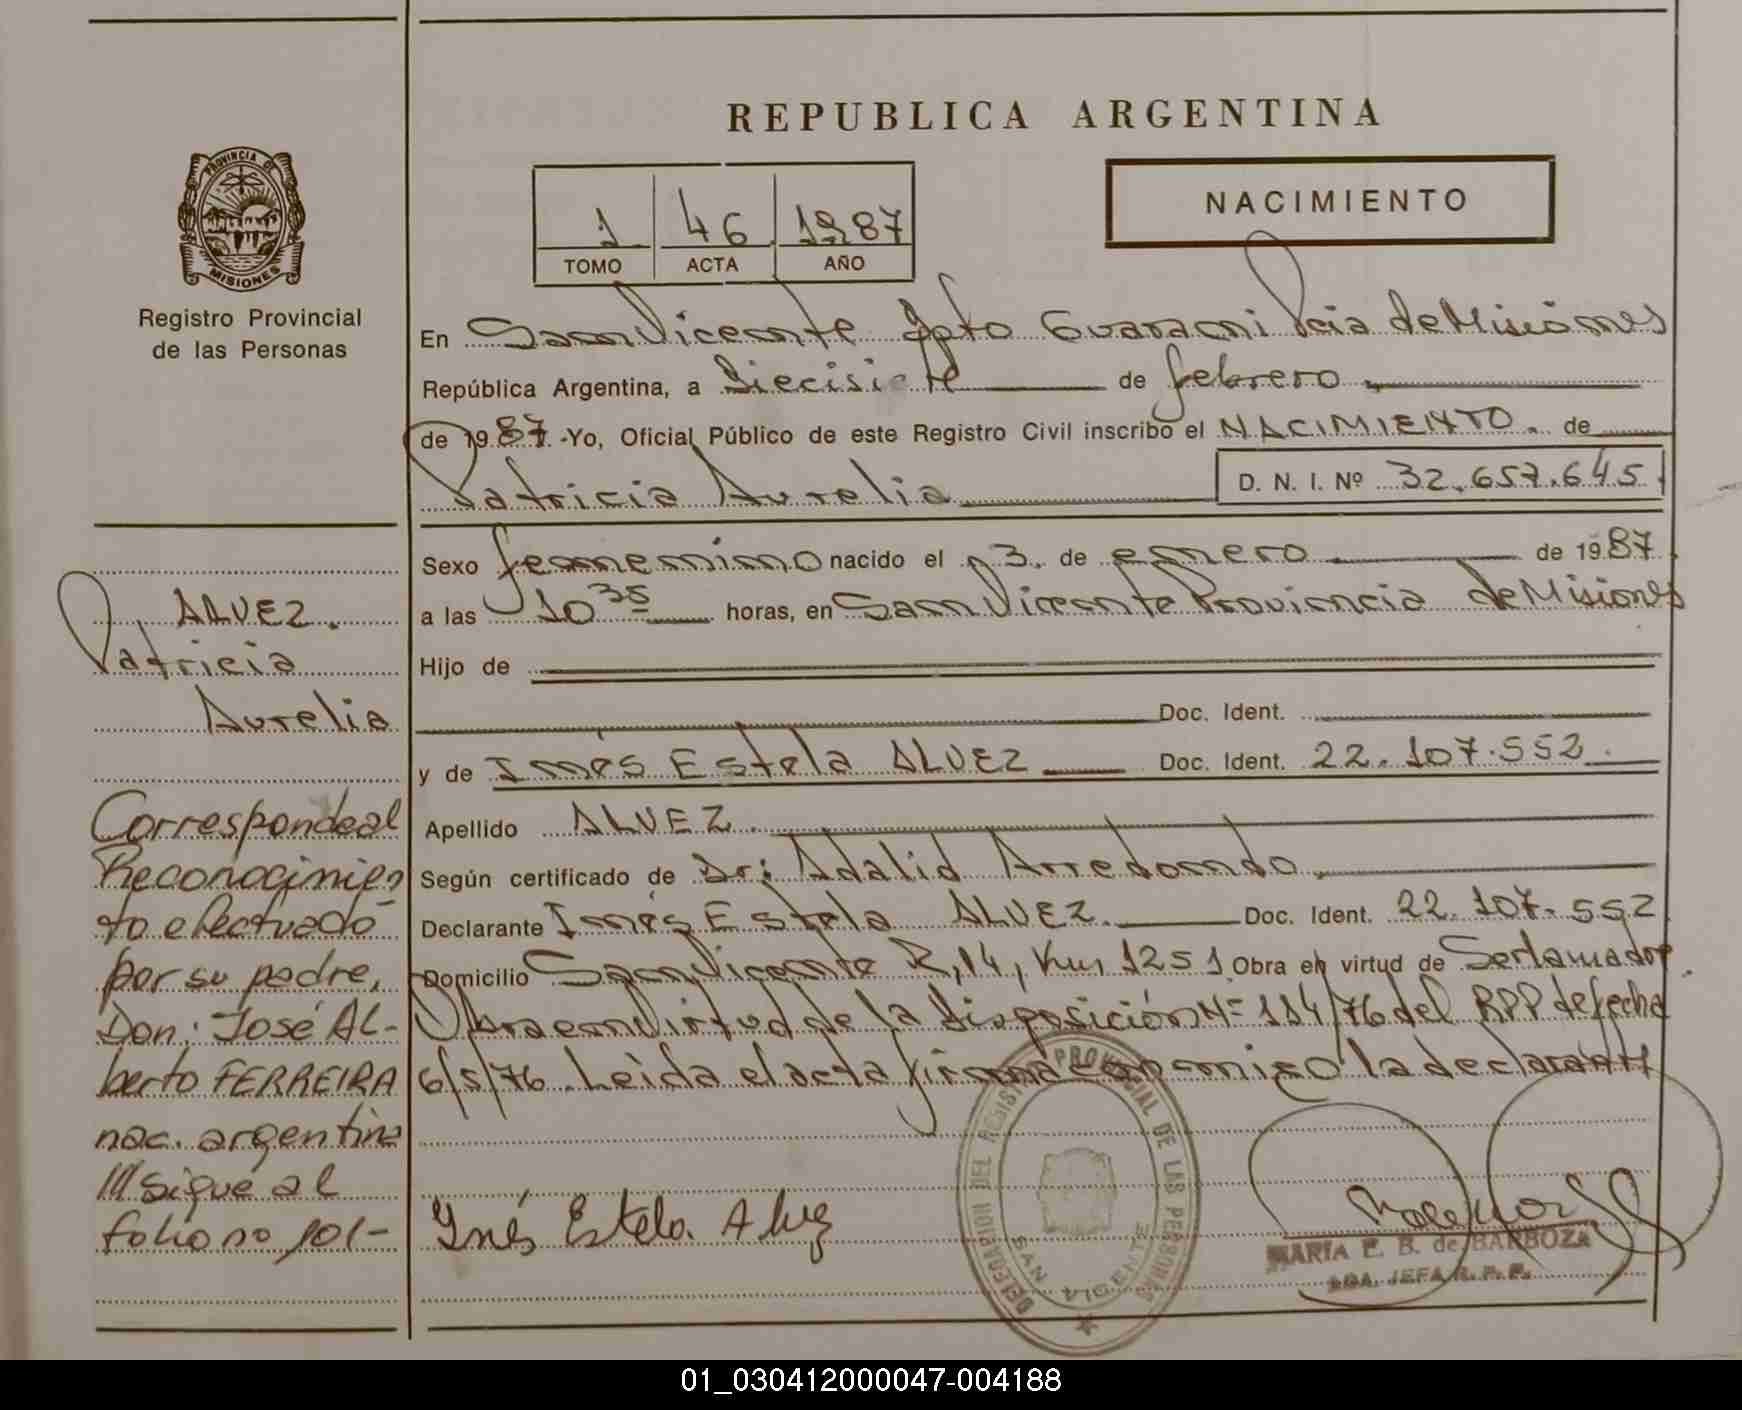 REPUBLICA ARGENTINA
PROVINCIA DE
MISIONES
Registro Provincial
de las Personas
1 46 1987
TOMO ACTA AÑO
NACIMIENTO
En San Vicente Dpto Guaraní Pcia de Misiones
República Argentina, a Diecisiete de febrero
de 1987. -Yo, Oficial Público de este Registro Civil inscribo el NACIMIENTO. de
Patricia Aurelia D. N. I. Nº 32.657.645
Sexo femenino nacido el 3. de enero de 1987
a las 10 35 horas, en San Vicente Provincia de Misiones
Hijo de
Doc. Ident.
y de Inés Estela ALVEZ Doc. Ident. 22.107.552.
Apellido ALVEZ.
Según certificado de Dr: Adalid Arredondo.
Declarante Inés Estela ALVEZ. Doc. Ident. 22.107.552
Domicilio San Vicente R, 14, Km, 1251 Obra en virtud de
Obra en virtud de la Disposición Nº 114/76 del RPP de fecha
6/5/76. Leida el acta firma conmigo la declarante
ALVEZ.
Patricia
Aurelia
Corresponde al
Reconocimien
to efectuado
por su padre,
Don: José AL-
berto FERREIRA
nac. argentina
/// sigue al
folio no 101-
Inés Estela Alvez
DELEGACION DEL REGISTRO PROVINCIAL DE LAS PERSONAS
SAN VICENTE
MARIA E. B. de BARBOZA
JEFA R. P. P.
01_030412000047-004188